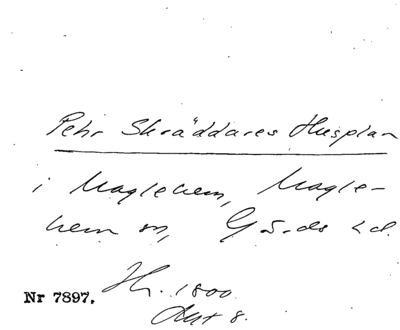 Pehr Skräddares Husplan
i Maglehem, Magle-
hem sn, Gärds hd.
Nr 7897. Hr. 1800
Akt 8.